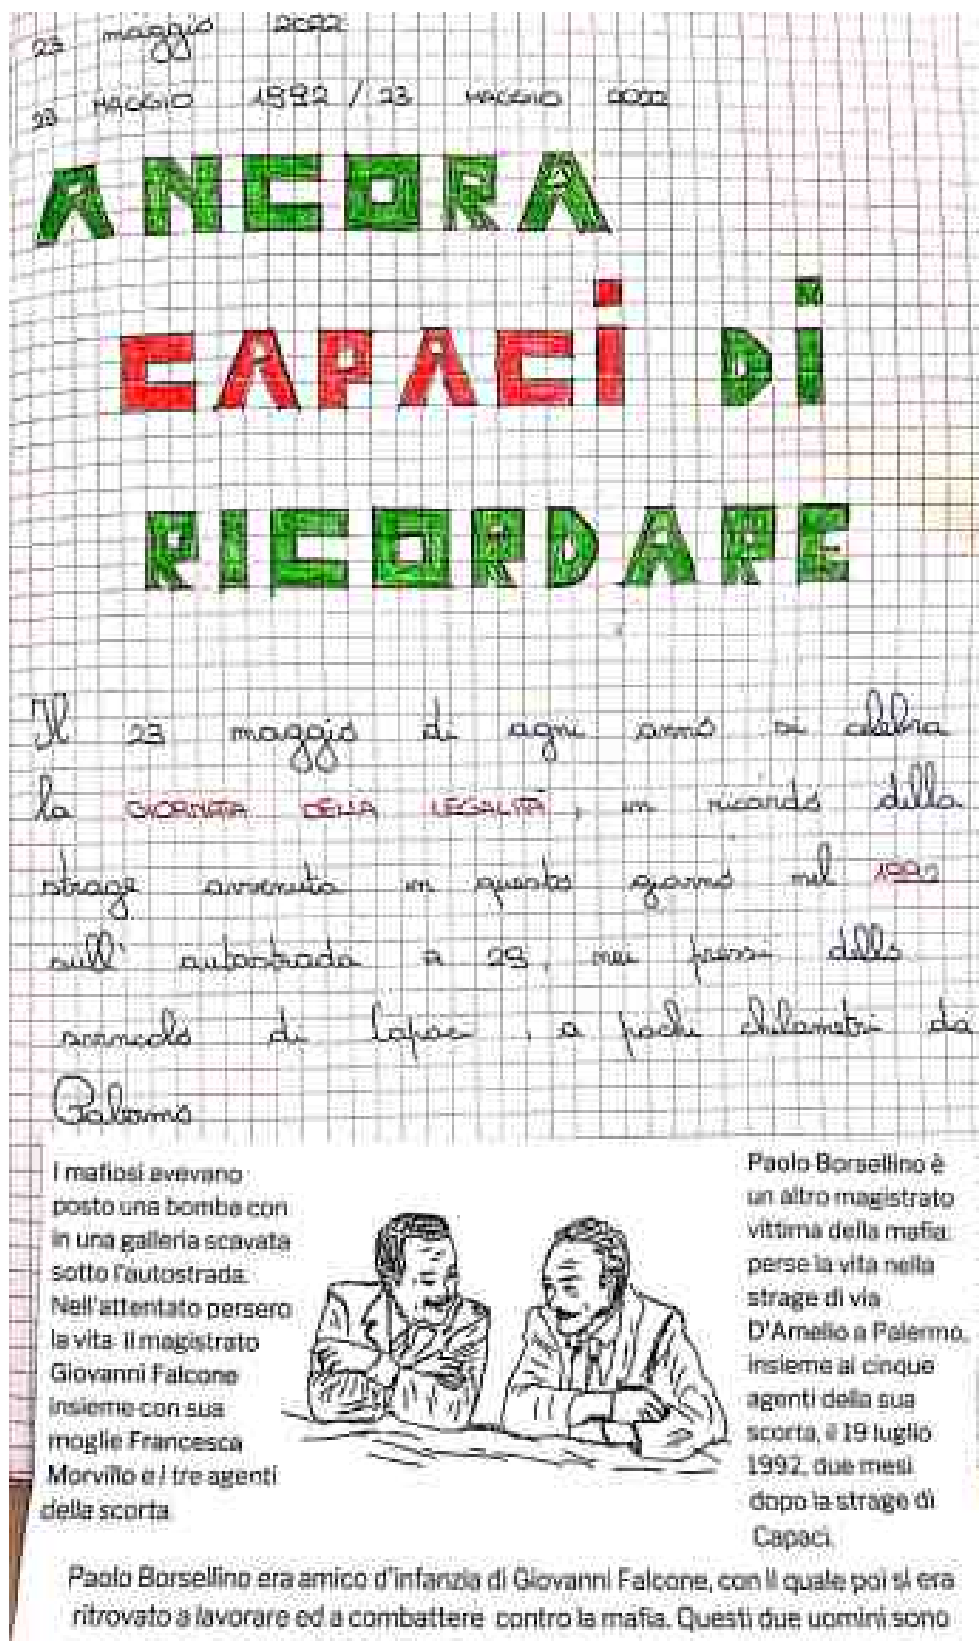 23 maggio 2022
23 MAGGIO 1992 / 23 MAGGIO 2022
ANCORA
CAPACI DI
RICORDARE
Il 23 maggio di ogni anno si celebra
la GIORNATA DELLA LEGALITÀ, in ricordo della
strage avvenuta in questo giorno nel 1992
sull' autostrada a 29, nei pressi dello
svincolo di Capaci, a pochi chilometri da
Palermo
I mafiosi avevano
posto una bomba con
in una galleria scavata
sotto l'autostrada.
Nell'attentato persero
la vita il magistrato
Giovanni Falcone
insieme con sua
moglie Francesca
Morvillo e i tre agenti
della scorta.
Paolo Borsellino è
un altro magistrato
vittima della mafia:
perse la vita nella
strage di via
D'Amelio a Palermo,
insieme ai cinque
agenti della sua
scorta, il 19 luglio
1992, due mesi
dopo la strage di
Capaci.
Paolo Borsellino era amico d'infanzia di Giovanni Falcone, con il quale poi si era
ritrovato a lavorare ed a combattere contro la mafia. Questi due uomini sono